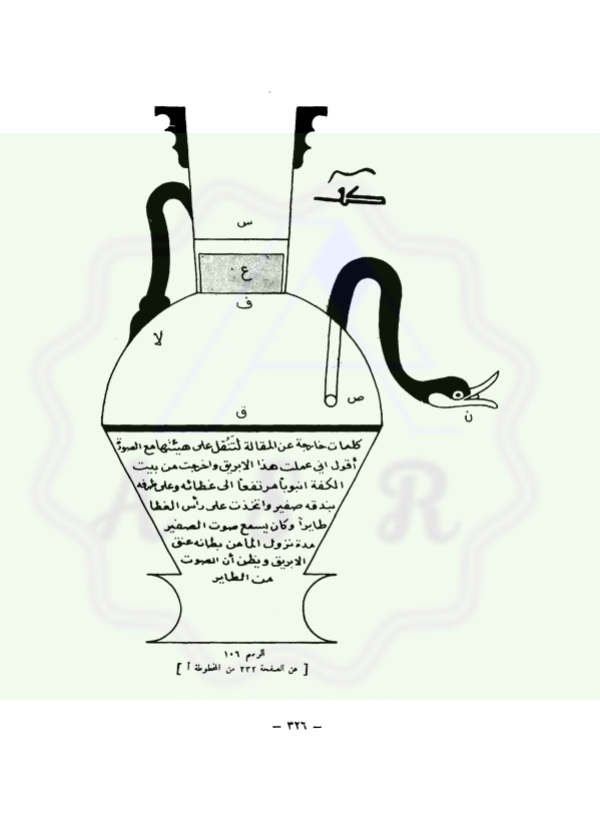 س
ع
ف
لا
ص
ق
ن
كلمات خارجة عن المقالة لتنقل على هيئتها مع الصورة
أقول اني عملت هذا الابريق واخرجت من بيت
الكفة انبوباً مرتفعاً الى غطائه وعلى طرفه
بندقه صفير واتخذت على رأس الغطا
طايراً وكان يسمع صوت الصفير
مدة نزول الما من بطانه عنق
الابريق ويظن أن الصوت
من الطاير
الرسم ١٠٦
[ عن الصفحة ٢٣٢ من المخطوطة أ ]
– ٣٢٦ –
A I R